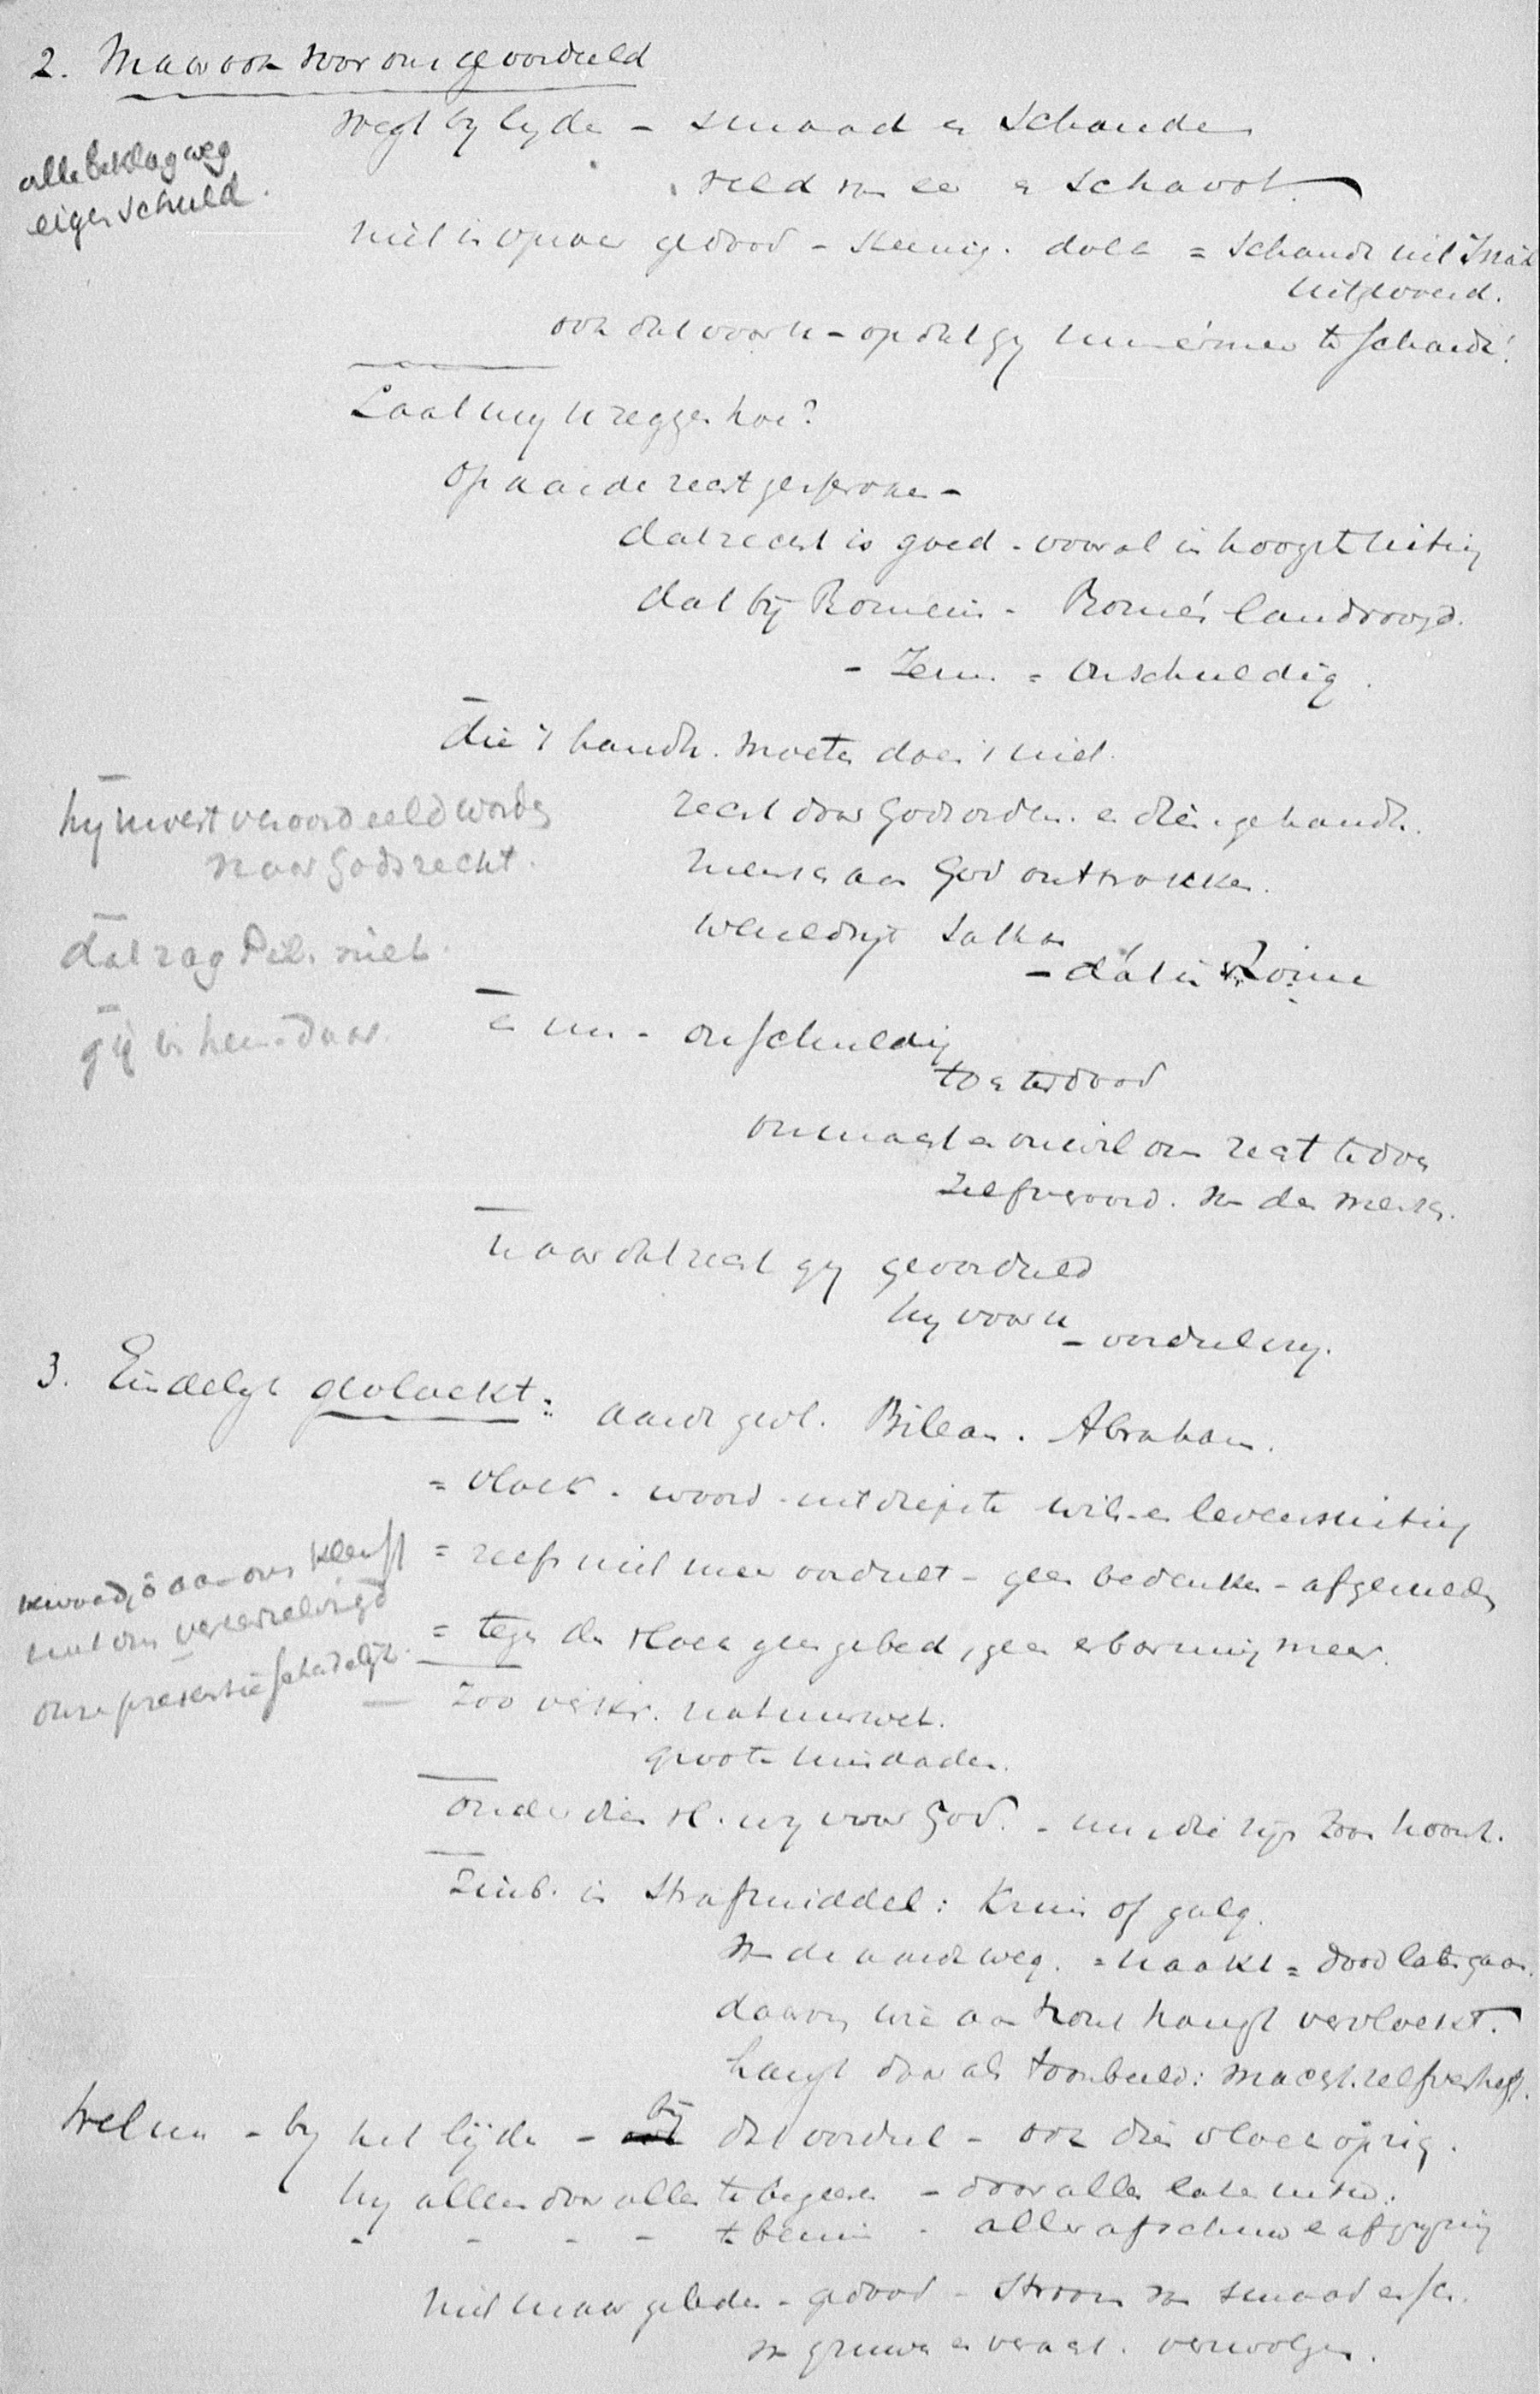 2. Maar ook voor ons geoordeeld
voegt by lyde - smaad en schande
alle beklag weg
eigen schuld.
veld van eer en schavot.
niet in oproer gedood - steenig. dolk = schande uit
uitgevoerd.
ook dat voor u - opdat gy nimmermeer te schande!
Laat my u zeggen hoe?
Op aarde recht gesproken -
dat recht is goed - vooral in hoogste uiting
dat bij Romein - Rome's landvoogd.
- Zen. = onschuldig.
die 't handh. moeten doen 't niet.
hy moest veroordeeld worden
naar Gods recht.
recht door God orden. en dien gehandh.
mensch aan God onttrokken.
dat zag Pil. niet.
Sathan
- dat in Rome
gij in hem daar.
en nu - onschuldig
toen ter dood
onmacht en onwil om recht te doen
zelfveroord. van den mensch.
naar dat recht gy geoordeeld
hy voor u - oordeeling.
3. Eindelyk gevloekt: aarde gevl. Bileam. Abraham.
= vloek - woord - uit diepste wils- en levensuiting
kwaad, ô aan ons kleeft
met ons vereenzelvigd
onze presentie schadelijk.
= zelfs niet meer oordeelt - geen bedenken - afgemeden
= tegen den vloek geen gebed, geen erbarming meer.
Zoo verkr. natuurwet.
groote misdaden.
onder dien vl. wy voor God. - nu die zijn Zoon koomt.
Zinb. in strafmiddel: Kruis of galg.
van de aarde weg. = naakt = dood laten gaan.
daarom wie aan hout hangt vervloekt.
hangt daar als toonbeeld: macht. zelfverheff.
Welnu - by het lijden - bij dat oordeel - ook die vloek oprig.
hy alleen door allen te begeeren - door allen laten
- - - - te beminn - aller afschuw en afgryzing
niet maar geleden - gedood - stroom van smaad en sch.
van gruwen en veracht. verzwolgen.